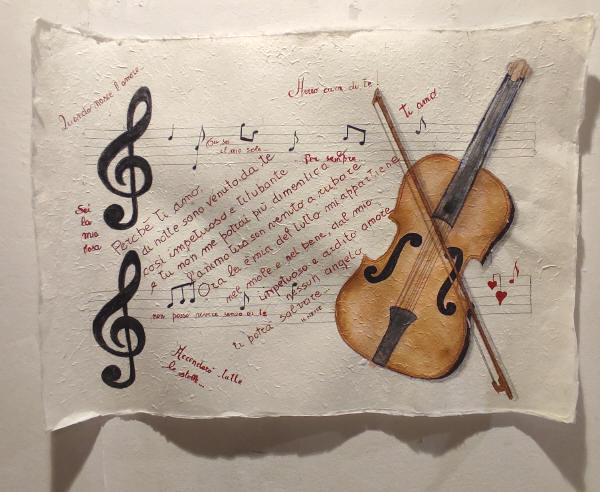 Quando nasce l'amore...
Amo ti amo
Tu sei
il mio sole...
Per sempre
Sei
la
mia
rosa
Perché ti amo.
di notte sono venuto da te
così impetuoso e titubante
e tu non me potrai più dimenticare
l'anima tua son venuto a rubare
Ora lei è mia del tutto mi appartiene
nel male e nel bene, dal mio
impetuoso e ardito amore
nessun angelo
ti potrà salvare
non posso vivere senza di te
Accenderò tutte
le stelle...